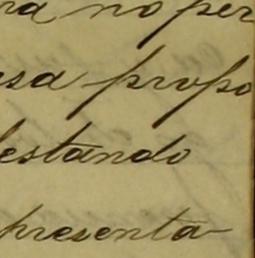 ra no per
sa propo
lestando
presenta-